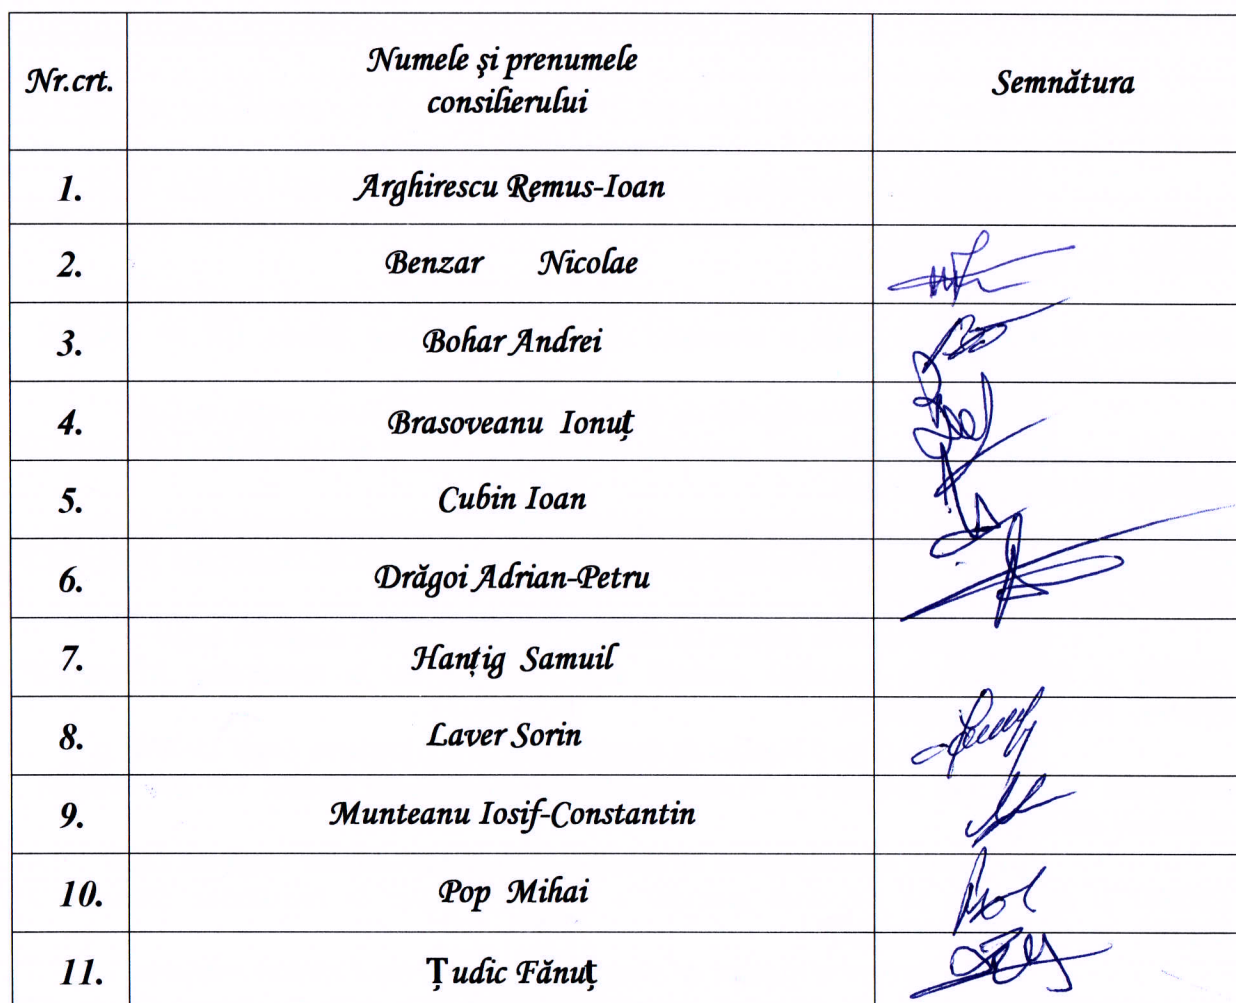 Nr.crt.
Numele şi prenumele
consilierului
Semnătura
1. Arghirescu Remus-Ioan
2. Benzar Nicolae
3. Bohar Andrei
4. Brasoveanu Ionuţ
5. Cubin Ioan
6. Drăgoi Adrian-Petru
7. Hanțig Samuil
8. Laver Sorin
9. Munteanu Iosif-Constantin
10. Pop Mihai
11. Țudic Fănuţ